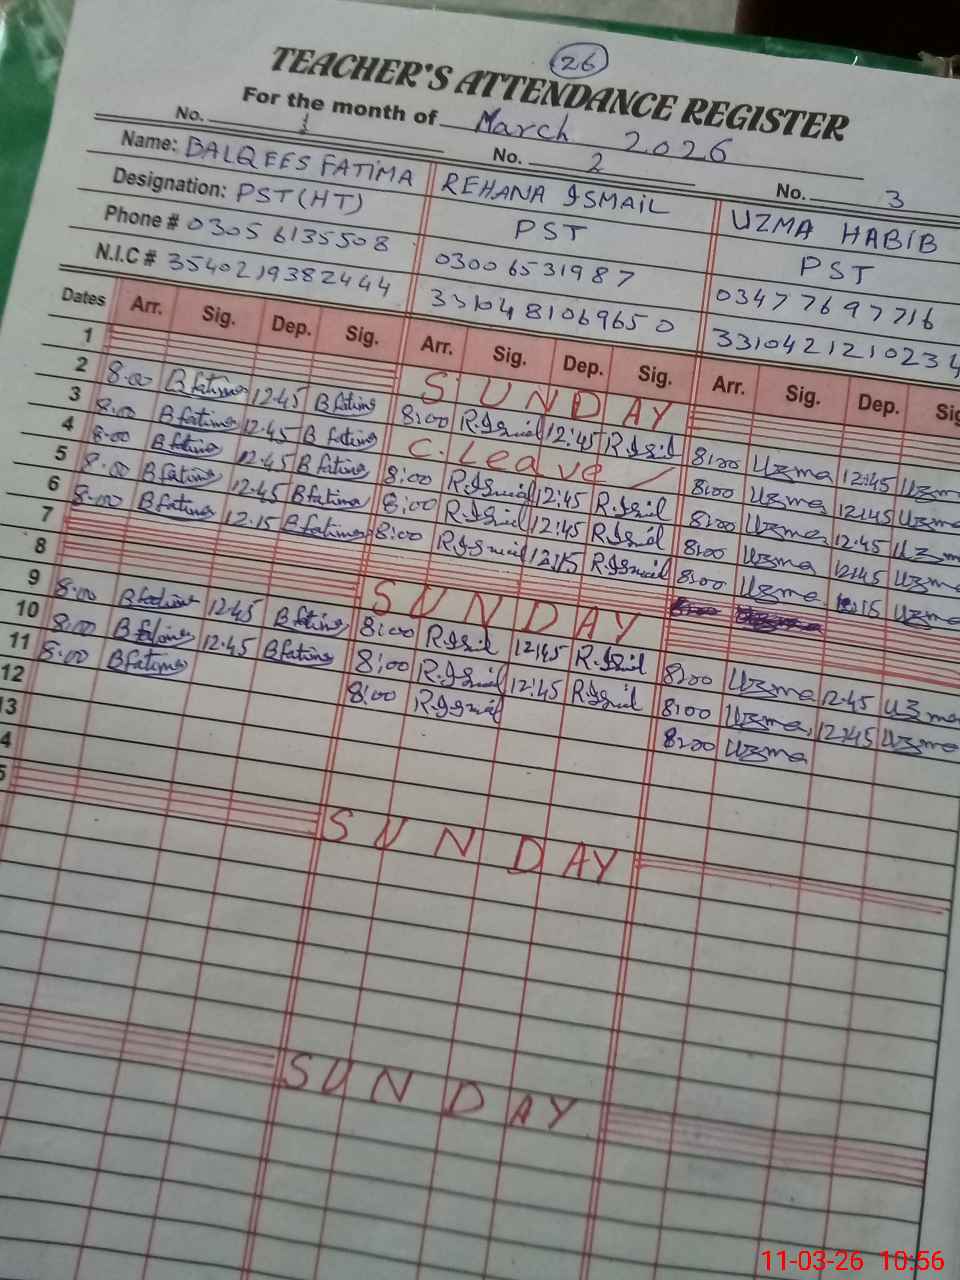 26
TEACHER'S ATTENDANCE REGISTER
For the month of March 2026
No. 1 No. 2 No. 3
Name: BALQEES FATIMA REHANA ISMAIL UZMA HABIB
Designation: PST(HT) PST PST
Phone # 0305 6135508 0300 6531987 0347 7697716
N.I.C # 3540219382444 3310481069650 3310421210234
Dates Arr. Sig. Dep. Sig. Arr. Sig. Dep. Sig. Arr. Sig. Dep. Sig
1 SUNDAY
2 8:00 B fatima 12:45 B fatima 8:00 R.Ismail 12:45 R.Ismail 8:00 Uzma 12:45 Uzm
3 8:00 B fatima 12:45 B fatima C.Leave 8:00 Uzma 12:45 Uzma
4 8:00 B fatima 12:45 B fatima 8:00 R.Ismail 12:45 R.Ismail 8:00 Uzma 12:45 Uzm
5 8:00 B fatima 12:45 B fatima 8:00 R.Ismail 12:45 R.Ismail 8:00 Uzma 12:45 Uzma
6 8:00 B fatima 12:15 B fatima 8:00 R.Ismail 12:15 R.Ismail 8:00 Uzma 12:15 Uzma
7
8 SUNDAY
9 8:00 B fatima 12:45 B fatima 8:00 R.Ismail 12:45 R.Ismail 8:00 Uzma 12:45 Uzma
10 8:00 B fatima 12:45 B fatima 8:00 R.Ismail 12:45 R.Ismail 8:00 Uzma 12:45 Uzma
11 8:00 B fatima 8:00 R.Ismail 8:00 Uzma
12
13
4
5 SUNDAY
SUNDAY
11-03-26 10:56